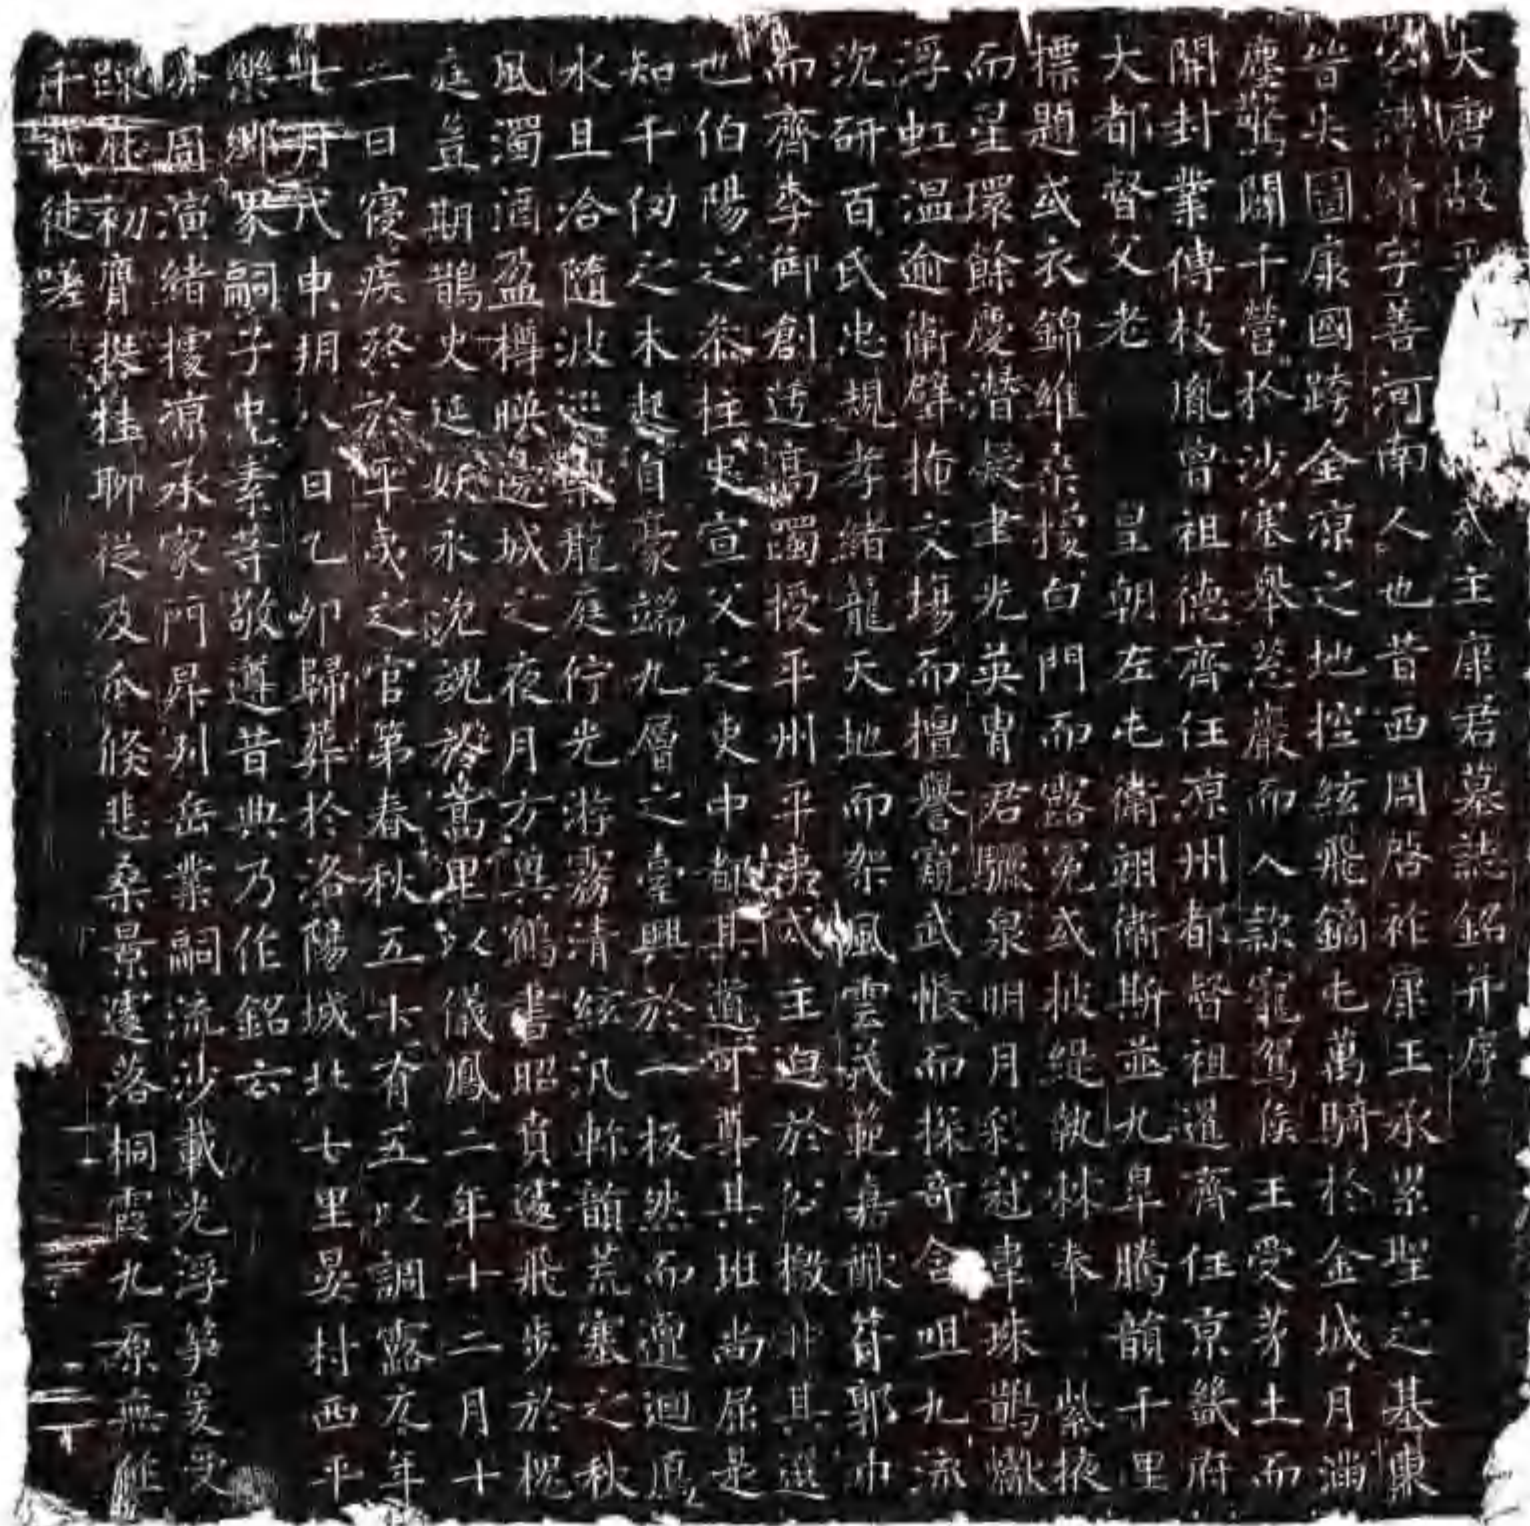 大唐故平 戍主康君墓誌銘并序
公諱續字善河南人也昔西周啓祚康王承累聖之基
昔失圖康國跨全涼之地控絃飛鏑屯萬騎於金城月滿
塵驚闢千營於沙塞舉 嚴而入款寵駕侯王受茅土而
開封業傳枝胤曾祖德齊任涼州都督祖暹齊任京畿府
大都督父老 皇朝左屯衛翊衛斯並九皐騰韻千里
標題或衣錦維桑擾白門而露冕或披緹執林奉 紫掖
而星環餘慶潛 聿光英胄君驪泉明月彩冠車珠鵲巘
浮虹温逾衛璧掩文場而擅譽窺武帳而探奇含咀九流
沈研百氏忠規孝緒龍天地而架風雲義範嘉猷苻郭巾
而齊李御創 萬 授平州平夷戍主迫於俗檄非其選
也伯陽之爲柱史宣父之吏中都其道可尊其班尚屈是
知千仞之木起自豪端九層之臺興於一板然而邅迴
水且洽隨波巡 龍庭佇光游霧清絃汎軫韻荒塞之秋
風濁酒盈樽映邊城之夜月方冀鶴書昭賁遂飛步於槐
庭豈期鵲火延妖永沈魂於蒿里以儀鳳二年十二月十
二日寢疾終於平夷之官第春秋五十有五以調露元年
七月戊申朔八日乙卯歸葬於洛陽城北七里晏村西平
樂鄉界嗣子屯素等敬遵昔典乃作銘云
圖演緒據涼承家門昇列岳業嗣流沙載光浮笋爰受
在初膺 桂聊從及瓜倏悲桑景遽落桐霞九原無
千 徒嗟